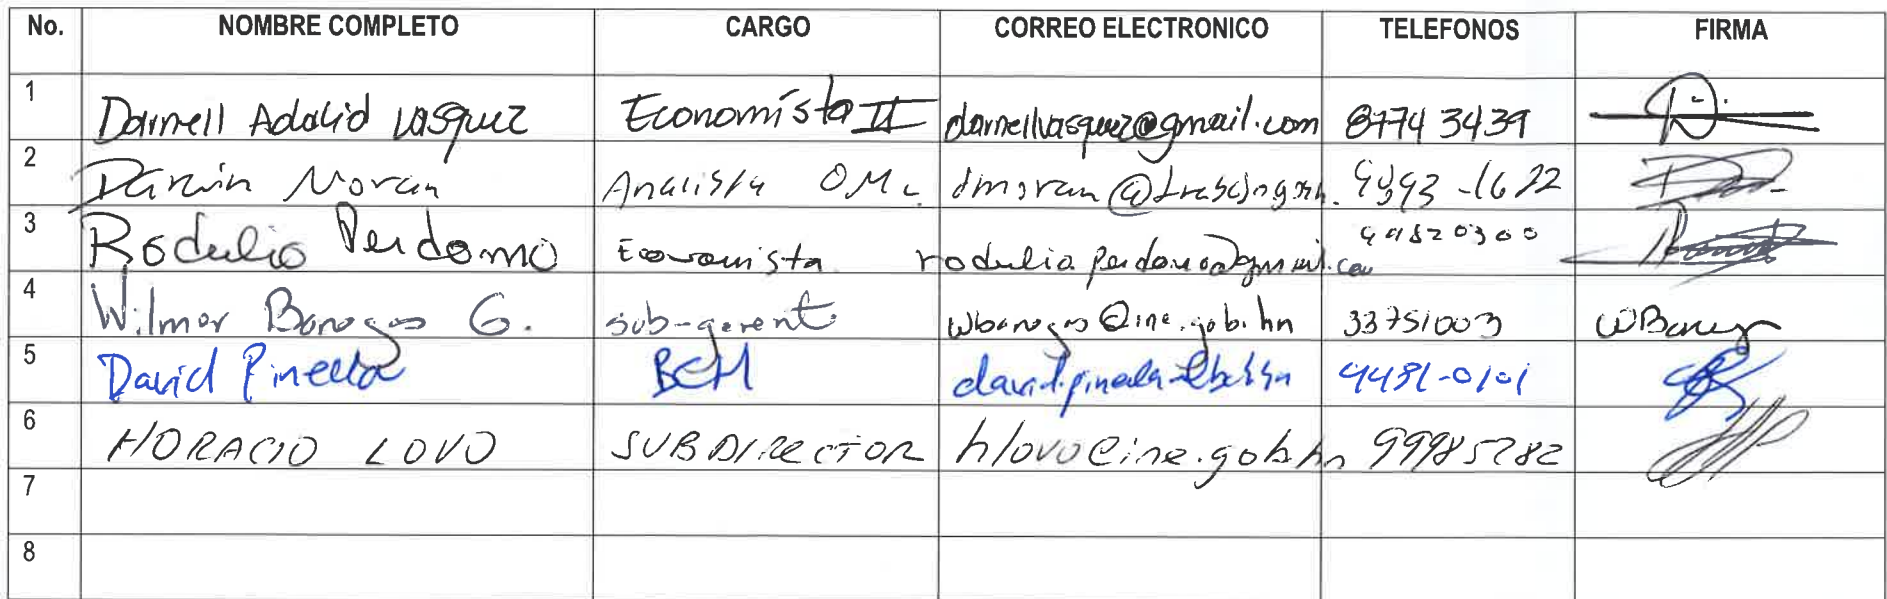 No. NOMBRE COMPLETO CARGO CORREO ELECTRONICO TELEFONOS FIRMA
1 Darnell Adalid Vasquez Economista II darnellvasquez@gmail.com 8774 3439
2 Darwin Moran Analista
3 Rodulio Perdomo Economista 99820300
4 Wilmer Banegas G. sub-gerent wbanegas@ine.gob.hn 33751003 WBaneg
5 David Pineda BCH 9481-0101
6 HORACIO LOVO SUBDIRECTOR hlovo@ine.gob.hn 99985782
7
8